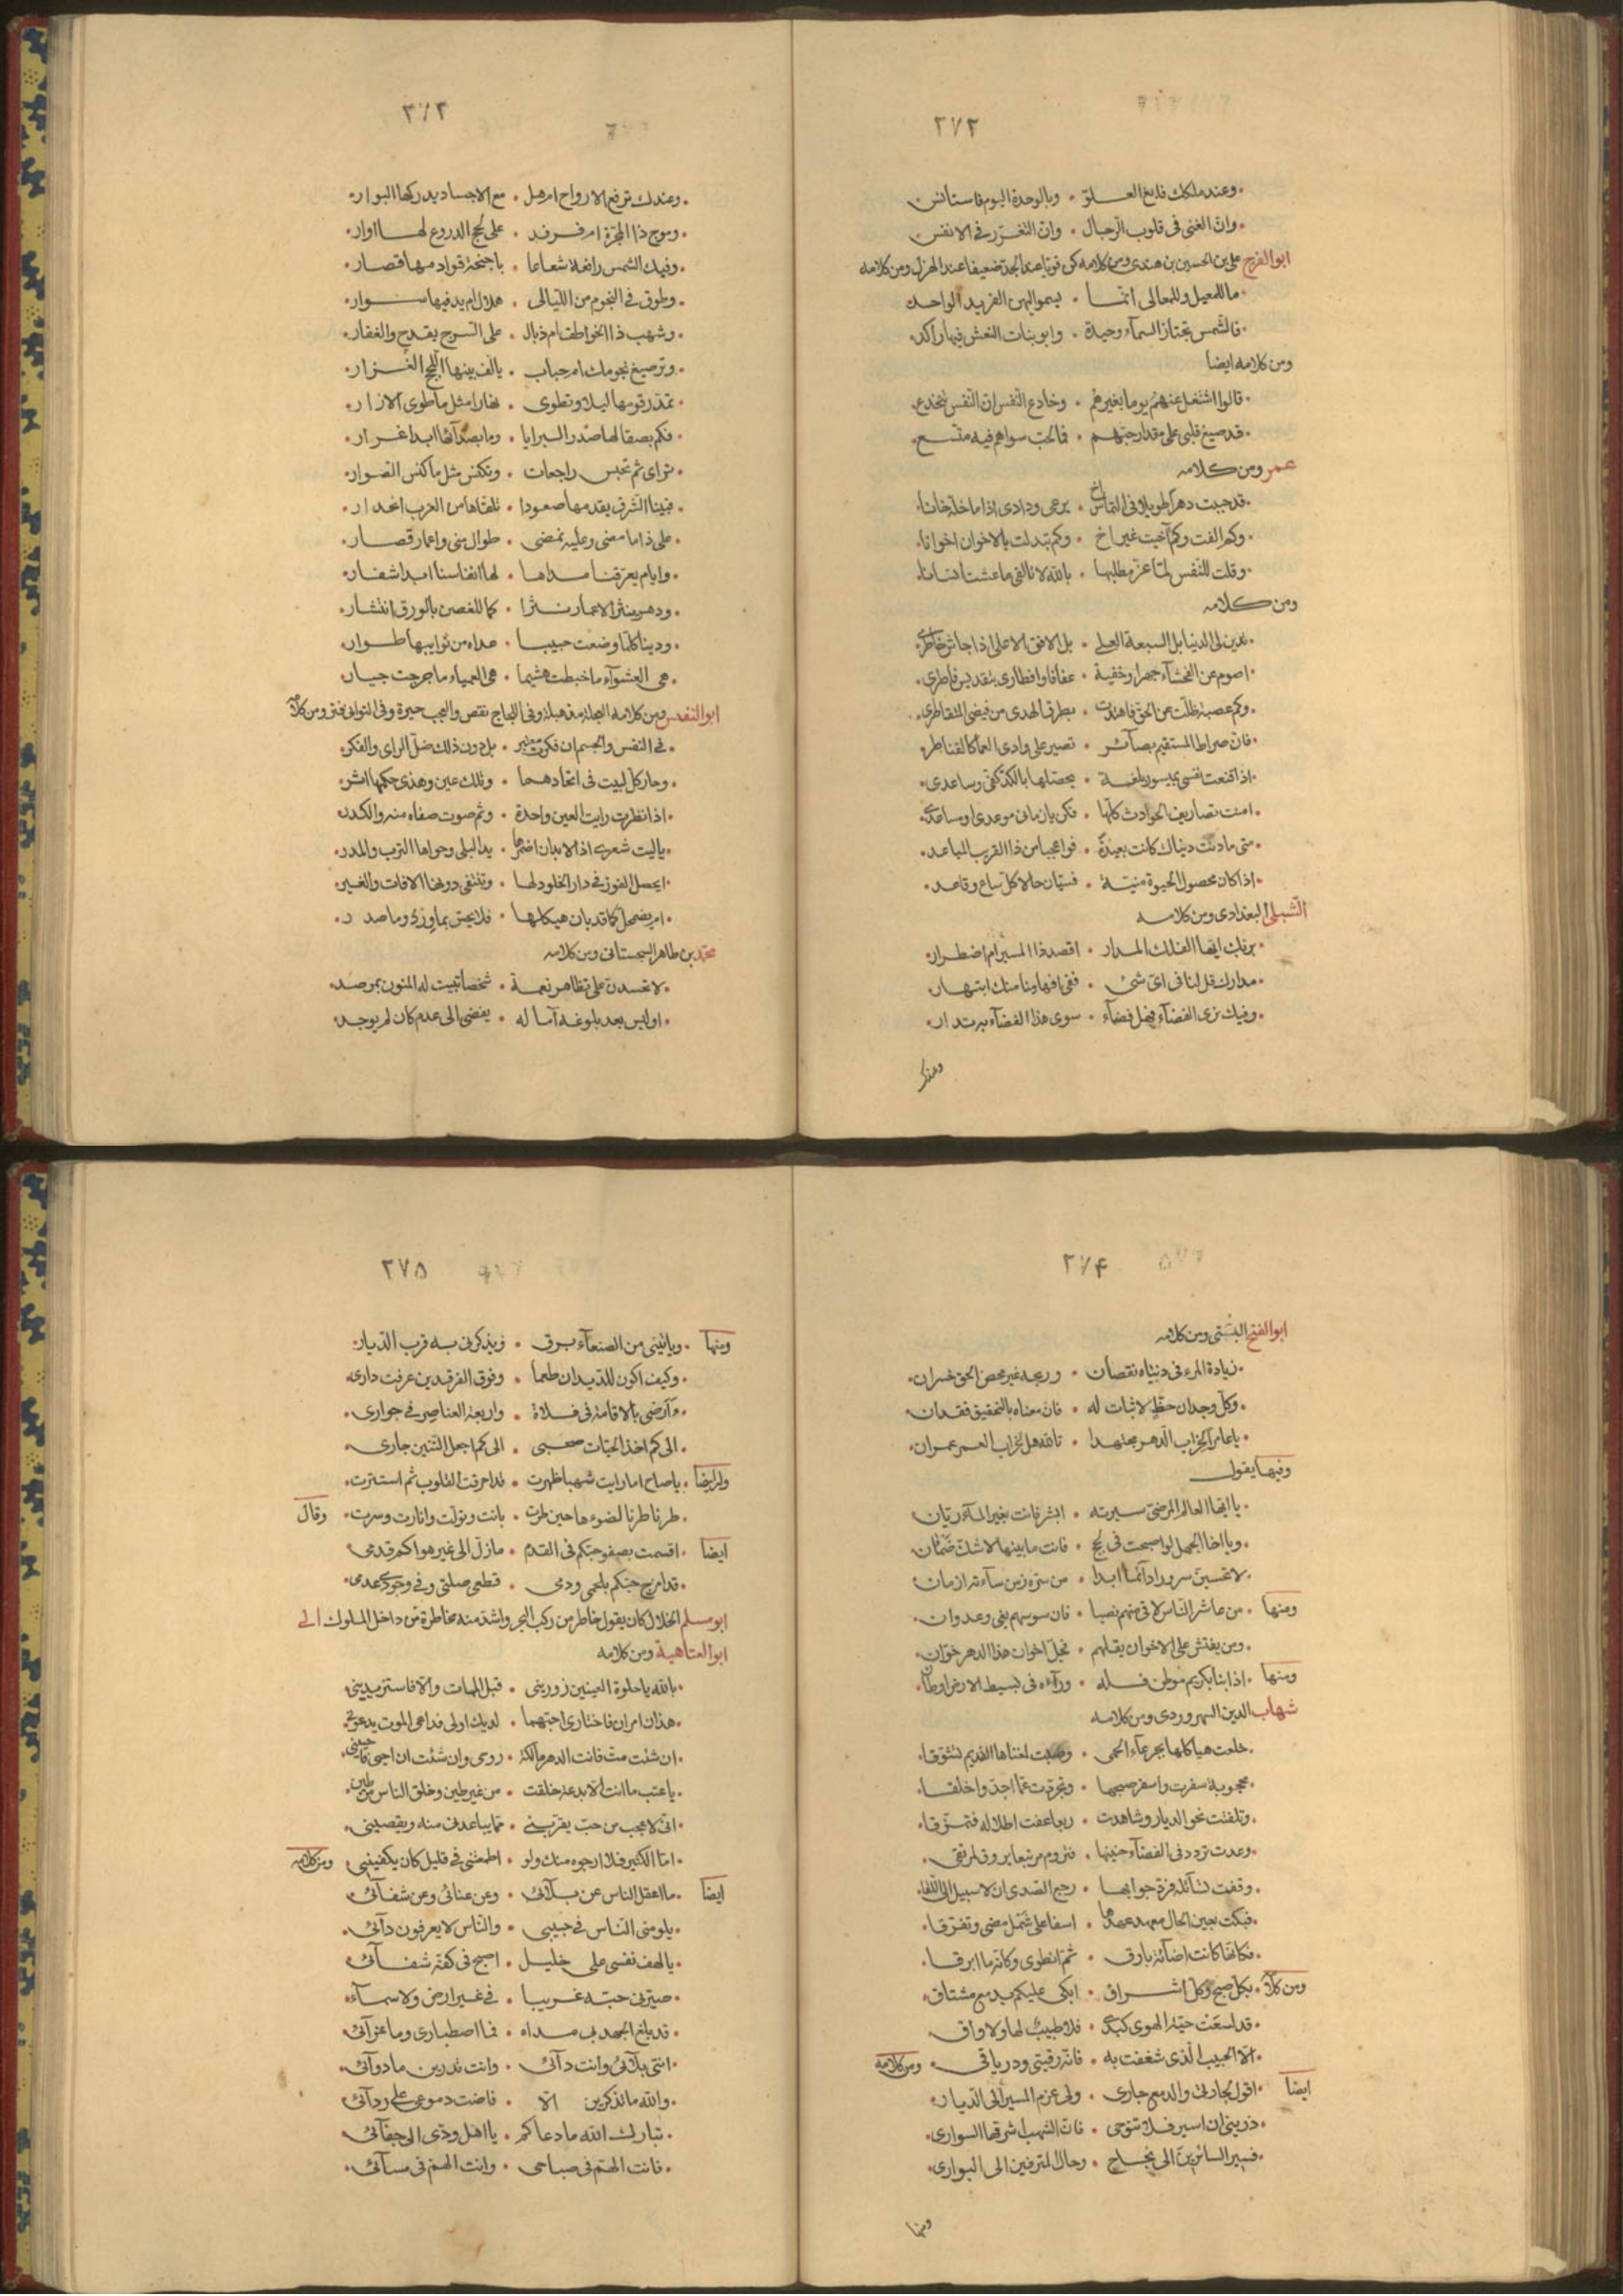 ٢٧٢
وعند ملكك فابغ العلو • وبالوحدة اليوم فاستانس
وان الغنى فى قلوب الرجال • وان التعزز فى الانفس
ابو الفرج على بن الحسين بن هندى ومن كلامه كن قويا عند الجد ضعيفا عند الهزل ومن كلامه
ما للمعيل وللمعالى انما • يسمو اليهن الفريد الواحد
فالشمس تجتاز السماء وحيدة • وابو بنات النعش فيها راكد
ومن كلامه ايضا
قالوا اشتغل عنهم يوما بغيرهم • وخادع النفس ان النفس تنخدع
قد صيغ قلبى على مقدار حبهم • فما لحب سواهم فيه متسع
عمر ومن كلامه
قد جبت دهرا طويلا فى التماس اخ • يرعى ودادى اذا ما خلة خانا
وكم الفت وكم آخيت غير اخ • وكم تبدلت بالاخوان اخوانا
وقلت للنفس لما عز مطلبها • بالله لا تالفى ما عشت انسانا
ومن كلامه
تدين لى الدنيا بل السبعة العلى • بل الافق الاعلى اذا جاش خاطرى
اصوم عن الفحشاء جهرا وخفية • عفافا وافطارى بتقديس فاطرى
وكم عصبة ظلت عن الحق فاهتدت • بطرق الهدى من فيضى المتقاطر
فان صراطى المستقيم بصائر • نصبن على وادى العما كالقناطر
اذا قنعت نفسى بميسور بلغة • يحصلها بالكد كفى وساعدى
امنت تصاريف الحوادث كلها • فكن يا زمانى موعدى او مساعدى
متى ما دنت دنياك كانت بعيدة • فوا عجبا من ذا القرب المباعد
اذا كان محصول الحيوة منية • فسيان حالا كل ساع وقاعد
الشبلى البغدادى ومن كلامه
بربك ايها الفلك المدار • اقصد ذا المسير ام اضطرار
مدارك قل لنا فى اى شئ • ففى افهامنا منك ابتهار
وفيك نرى الفضاء فهل فضاء • سوى هذا الفضاء به تدار
وعندك
٢٧٣
وعندك ترفع الارواح ام هل • مع الاجساد يدركها البوار
وموج ذا المجرة ام فرند • على لجج الدروع لها اوار
وفيك الشمس رافعة شعاعا • باجنحة قوادمها قصار
وطوق فى النجوم من الليالى • هلال ام يد فيها سوار
وشهب ذا الخواطف ام ذبال • على السرج يقدح والعفار
وترصيع نجومك ام حباب • يالف بينها اللجج الغزار
تمد رقومها ليلا وتطوى • نهارا مثل ما طوى الازار
فكم بصقالها صدر البرايا • وما بصدآئها ابدا غرار
تراى ثم تخنس راجعات • وتكنس مثل ما كنس الصوار
فبينا الشرق يقدمها صعودا • تلقاها من الغرب انحدار
على ذا ما مضى وعليه نمضى • طوال منى واعمار قصار
وايام يعرقنا مداها • لها انفاسنا ابدا شفار
ودهر ينثر الاعمار نثرا • كما للغصن بالورق انتشار
ودنيا كلما وضعت حبيبا • غداه من نوايبها طوار
هى العشوآء ما خبطت هشيم • هى العمياء ما جرحت جبار
ابو النفيس ومن كلامه العجلة وفى اللجاج نقص والعجب حيرة وفى التوانى فتر ومن كلامه
فى النفس والجسم ان فكرت معتبر • بل دون ذلك ضل الراى والفكر
وحار كل لبيب فى اتحادهما • وتلك عين وهذى حكمها اثر
اذا نظرت رايت العين واحدة • وثم صوت صفاه منه والكدر
يا ليت شعرى اذا الابدان اضمرها • يد البلى وحواها الترب والمدر
ايحصل الفوز فى دار الخلود لها • وتنتفى دونها الافات والغير
ام يضمحل كما قد بان هيكلها • فلا يحس بما ورد وما صدر
محمد بن طاهر السجستانى ومن كلامه
لا تحسدن على تظاهر نعمة • شخصا تبيت له المنون بمرصد
اوليس بعد بلوغه آماله • يفضى الى عدم كان لم يوجد
٢٧۴
ابو الفتح البستى ومن كلامه
زيادة المرء فى دنياه نقصان • وربحه غير محض الحق خسران
وكل وجدان حظ لا ثبات له • فان معناه بالتحقيق فقدان
يا عامرا لخراب الدهر مجتهدا • تالله هل لخراب العمر عمران
وفيها يقول
يا ايها العالم المرضى سيرته • ابشر فانت بغير الماء ريان
ويا اخا الجهل لو اصبحت فى لجج • فانت ما بينها لا شك ظمان
لا تحسبن سرورا دائما ابدا • من سره زمن ساءته ازمان
ومنها • من عاشر الناس لاقى منهم نصبا • فان سوسهم بغى وعدوان
ومن يفتش على الاخوان يقلهم • فجل اخوان هذا الدهر خوان
ومنها • اذا نبا بكريم موطن فله • ورآءه فى بسيط الارض اوطان
شهاب الدين السهروردى ومن كلامه
خلعت هياكلها بجرعاء الحمى • وصبت لمغناها القديم تشوقا
محجوبة سفرت واسفر صبحها • وتجردت عما اجد واخلقا
وتلفتت نحو الديار وشاهدت • ربعا عفت اطلاله فتمزقا
وعدت تردد فى الفضاء حنينها • فتروم مرتبعا يروق لمرتقى
وقفت تسائله فرد جوابها • رجع الصدى ان لا سبيل الى اللقا
فبكت بعين الحال معهد عهدها • اسفا على شمل مضى وتفرقا
فكانما كانت اضائة بارق • ثم انطوى وكانه ما ابرقا
ومن كلامه • بكل صبح وكل اشراق • ابكى عليكم بدمع مشتاق
قد لسعت حية الهوى كبدى • فلا طبيب لها ولا واق
الا الحبيب الذى شغفت به • فانه رقيتى ودرياقى • ومن كلامه
ايضا • اقول لجارتى والدمع جارى • ولى عزم المسير الى الديار
ذرينى ان اسير فلا تنوحى • فان الشهب اشرقها السوارى
فسير السائرين الى نجاح • وحال المترفين الى البوارى
ومنها
٢٧۵
ومنها • وياتينى من الصنعاء برق • ويذكرنى به قرب الديار
وكيف اكون للديدان طعما • وفوق الفرقدين عرفت دارى
وارضى بالاقامة فى فلاة • واربعة العناصر فى جوارى
الى كم اخذ الحيات صحبى • الى كم اجعل التنين جارى
وله ايضا • يا صاح اما رايت شهبا ظهرت • قد احرقت القلوب ثم استترت
طرنا طربا لضوءها حين طرت • بانت وتولت وانارت وسرت • وقال
ايضا • اقسمت بصفو حبكم فى القدم • ما زل الى غير هواكم قدمى
قد امزج حبكم بلحمى ودمى • قطعى صلتى وفى وجودى عدمى
ابو مسلم الخلال كان يقول خاطر من ركب البحر واشد منه مخاطرة من داخل الملوك
ابو العتاهية ومن كلامه
بالله يا حلوة العينين زورينى • قبل الممات والا فاستزيرينى
هذان امران فاختارى احبهما • لديك اولى فداعى الموت يدعونى
ان شئت مت فانت الدهر مالكة • روحى وان شئت ان احيى فاحيينى
يا عتب ما انت الا بدعة خلقت • من غير طين وخلق الناس من طين
انى لاعجب من حب يقربنى • مما يباعدنى منه ويقصينى
اما الكثير فلا ارجوه منك ولو • اطمعتنى فى قليل كان يكفينى • ومن كلامه
ايضا • ما اغفل الناس عن بلآئى • وعن عنائى وعن شفآئى
يلومنى الناس فى حبيبى • والناس لا يعرفون دآئى
يا لهف نفسى على خليل • اصبح فى كفه شفآئى
صيرنى حبه غريبا • فى غير ارض ولا سمآء
قد بلغ الجهد بى مداه • فما اصطبارى وما عزآئى
انتى بلآئى وانت دآئى • وانت تدرين ما دوآئى
والله ما تذكرين الا • فاضت دموعى على ردآئى
تبارك الله ما دعاكم • يا اهل ودى الى جفآئى
فانت الهم فى صباحى • وانت الهم فى مسآئى